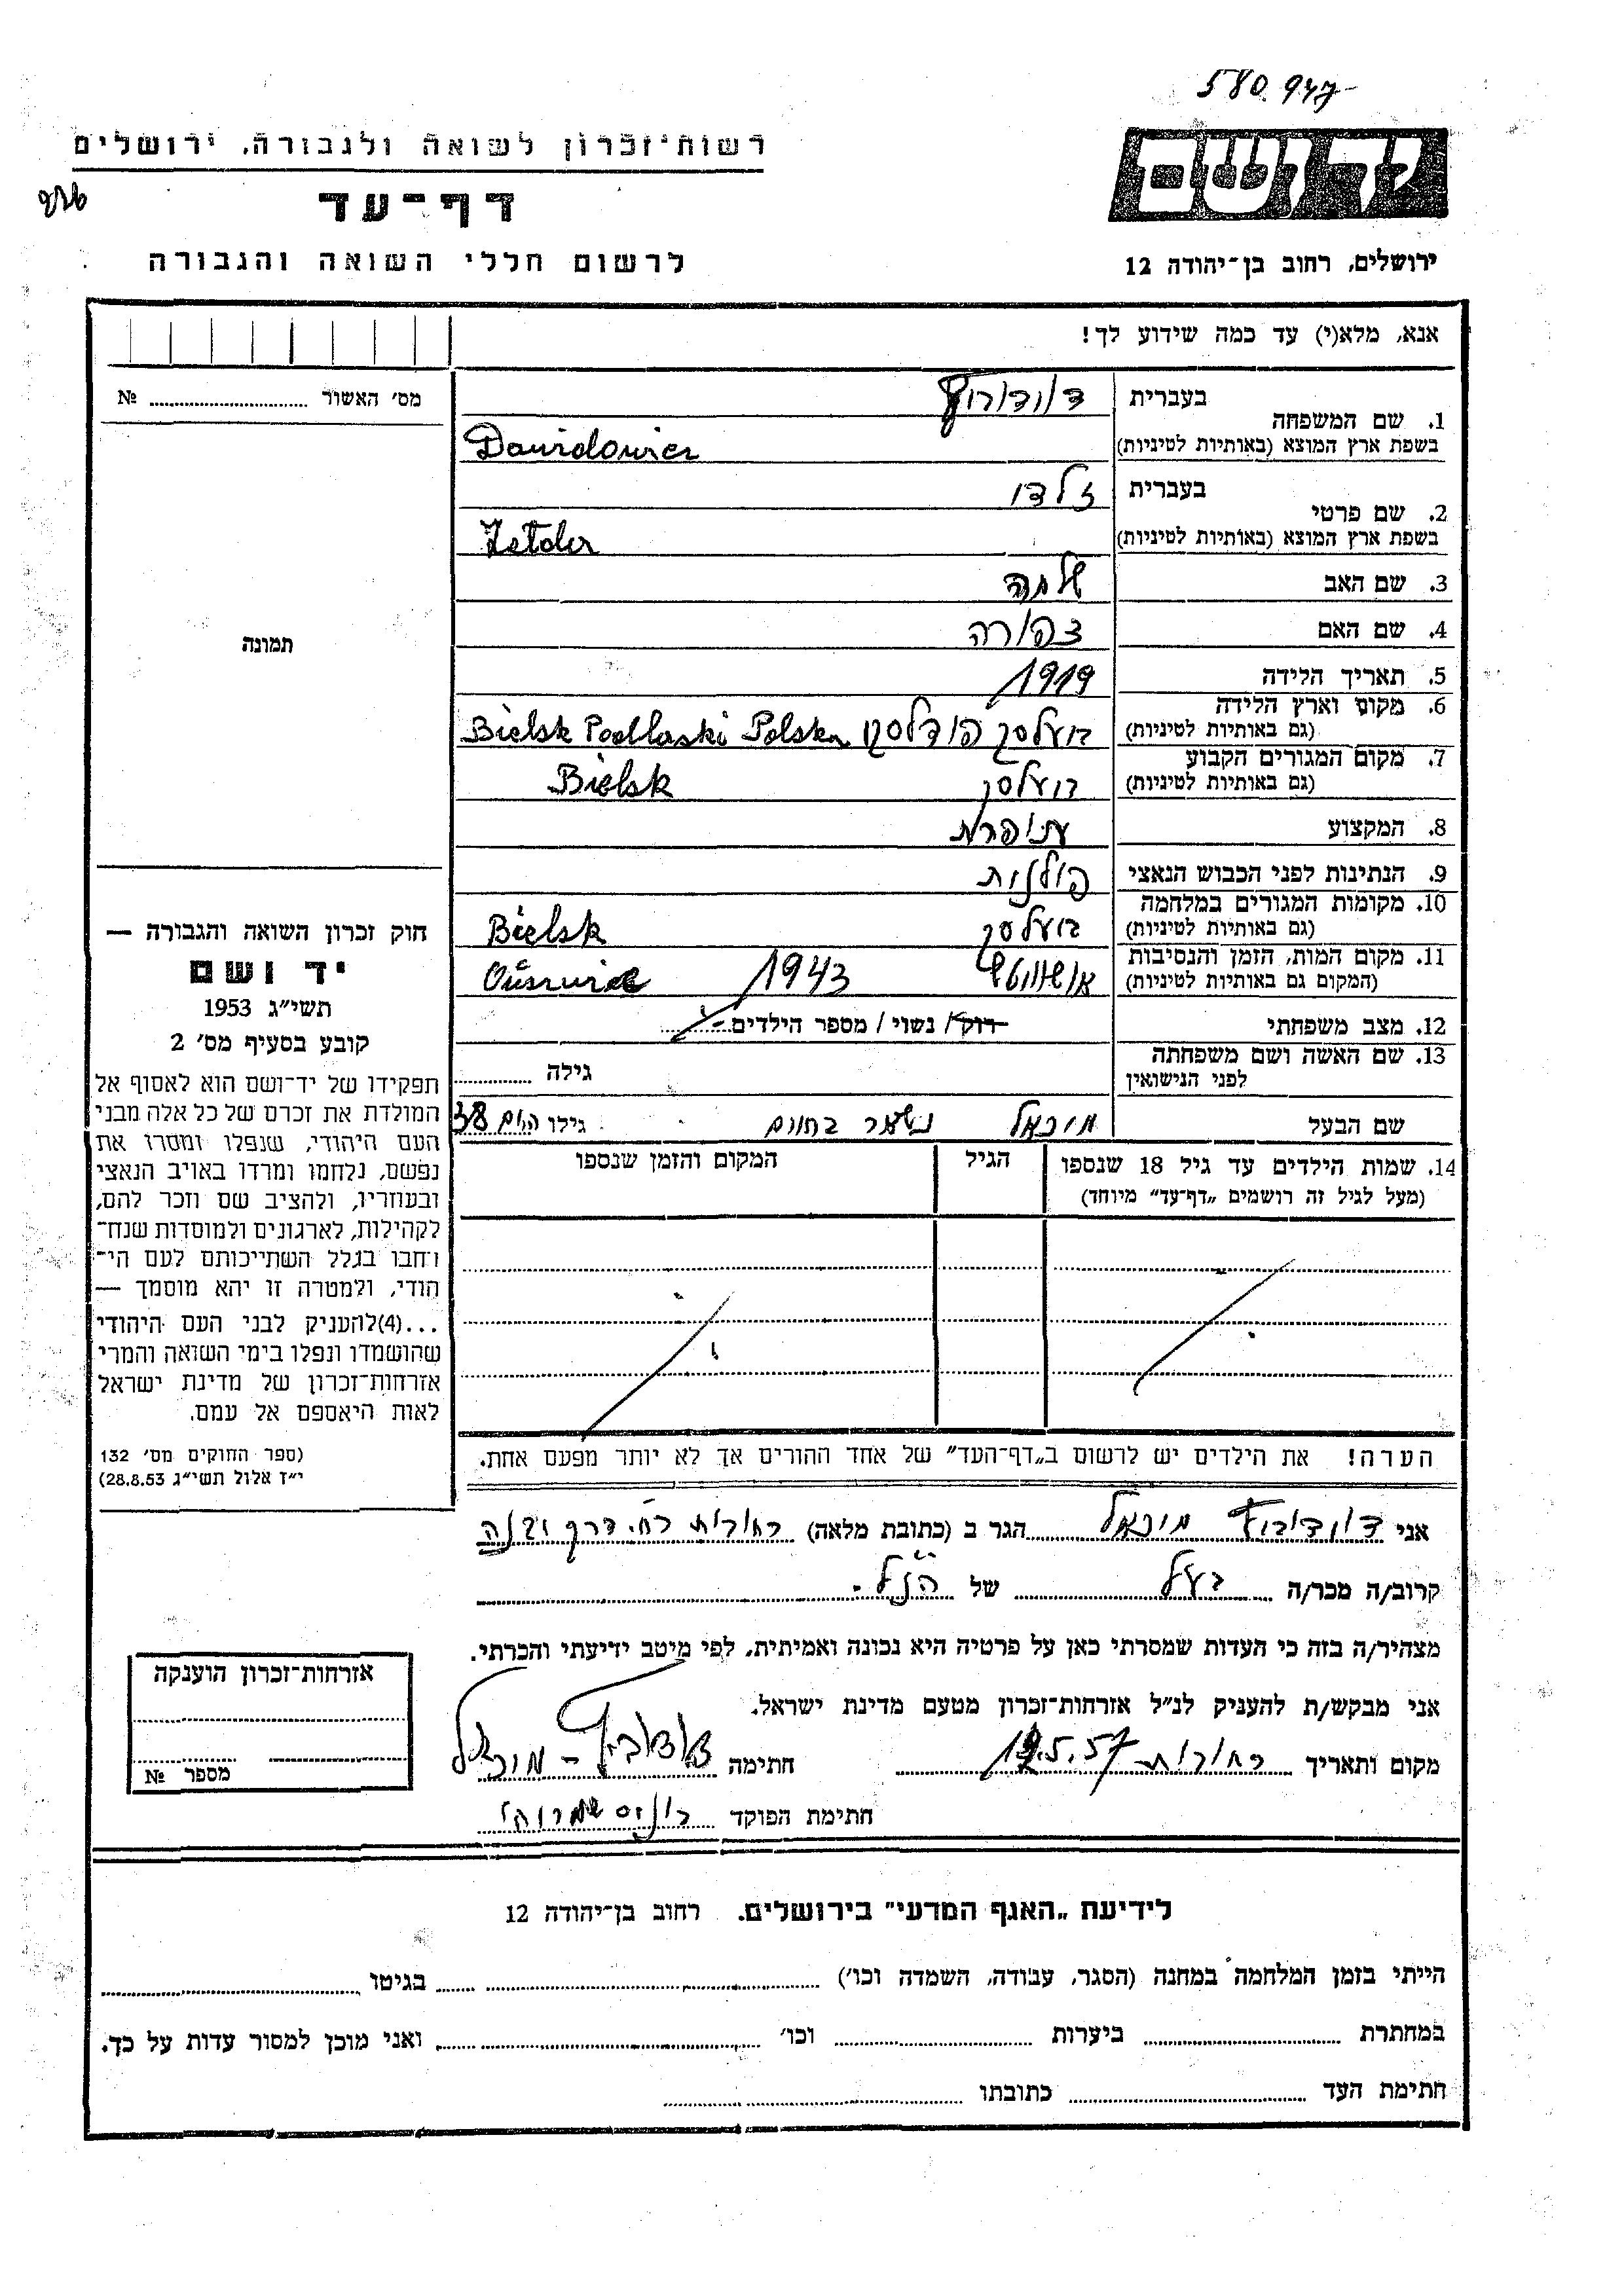 580947
רשות־זכרון לשואה ולגבורה, ירושלים
דף־עד
לרשום חללי השואה והגבורה
יד ושם
ירושלים, רחוב בן־יהודה 12
אנא, מלא(י) עד כמה שידוע לך!
מס׳ האשור № 
תמונה
חוק זכרון השואה והגבורה —
יד ושם
תשי״ג 1953
קובע בסעיף מס׳ 2
תפקידו של יד־ושם הוא לאסוף אל
המולדת את זכרם של כל אלה מבני
העם היהודי, שנפלו ומסרו את
נפשם, נלחמו ומרדו באויב הנאצי
ובעוזריו, ולהציב שם וזכר להם,
לקהילות, לארגונים ולמוסדות שנח־
רחבו בגלל השתייכותם לעם הי־
הודי, ולמטרה זו יהא מוסמך —
...(4)להעניק לבני העם היהודי
שהושמדו ונפלו בימי השואה והמרי
אזרחות־זכרון של מדינת ישראל
לאות היאספם אל עמם.
(ספר החוקים מס׳ 132
י״ז אלול תשי״ג 28.8.53)
1. שם המשפחה בעברית דוידוביץ
בשפת ארץ המוצא (באותיות לטיניות) Dawidowicz
2. שם פרטי בעברית זלדו
בשפת ארץ המוצא (באותיות לטיניות) Zelda
3. שם האב שלמה
4. שם האם צפורה
5. תאריך הלידה 1919
6. מקום וארץ הלידה (גם באותיות לטיניות) בועלסק פודלסקי Bielsk Podlaski Polska
7. מקום המגורים הקבוע (גם באותיות לטיניות) בועלסק Bielsk
8. המקצוע תופרת
9. הנתינות לפני הכבוש הנאצי פולנית
10. מקומות המגורים במלחמה (גם באותיות לטיניות) בועלסק Bielsk
11. מקום המות, הזמן והנסיבות (המקום גם באותיות לטיניות) אושוויץ 1943
12. מצב משפחתי רוק / נשוי / מספר הילדים
13. שם האשה ושם משפחתה לפני הנישואין גילה
שם הבעל מיכאל נשאר בחיים גילו היום 38
14. שמות הילדים עד גיל 18 שנספו הגיל המקום והזמן שנספו
(מעל לגיל זה רושמים „דף־עד״ מיוחד)
הערה! את הילדים יש לרשום ב„דף־העד״ של אחד ההורים אך לא יותר מפעם אחת.
אני דוידוביץ מיכאל הגר ב (כתובת מלאה) רחובות רח. דרך יבנה
קרוב/ה מכר/ה בעל של הנ״ל.
מצהיר/ה בזה כי העדות שמסרתי כאן על פרטיה היא נכונה ואמיתית, לפי מיטב ידיעתי והכרתי.
אני מבקש/ת להעניק לנ״ל אזרחות־זכרון מטעם מדינת ישראל.
מקום ותאריך רחובות 19.5.57 חתימה דוידוביץ - מיכאל
חתימת הפוקד
אזרחות־זכרון הוענקה
מספר №
לידיעת „האגף המדעי״ בירושלים. רחוב בן־יהודה 12
הייתי בזמן המלחמה במחנה (הסגר, עבודה, השמדה וכו׳) בגיטו
במחתרת ביערות וכו׳ ואני מוכן למסור עדות על כך.
חתימת העד כתובתו